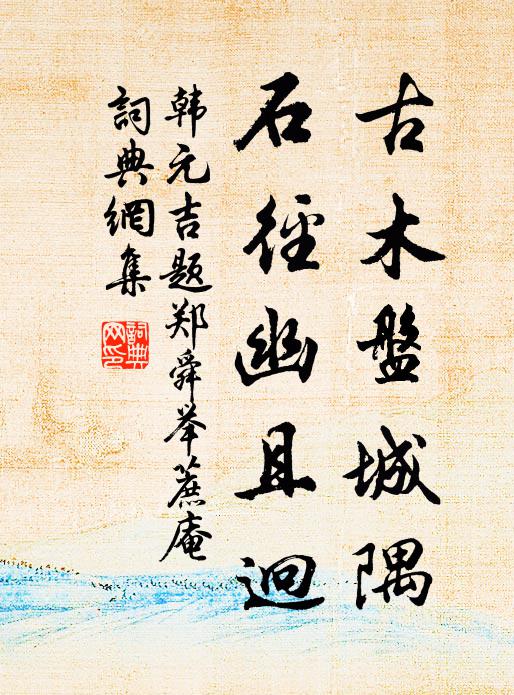 古木盤城隅
石徑幽且迴
韩元吉题郑舜举蔗庵
詞典網集
詞典網印